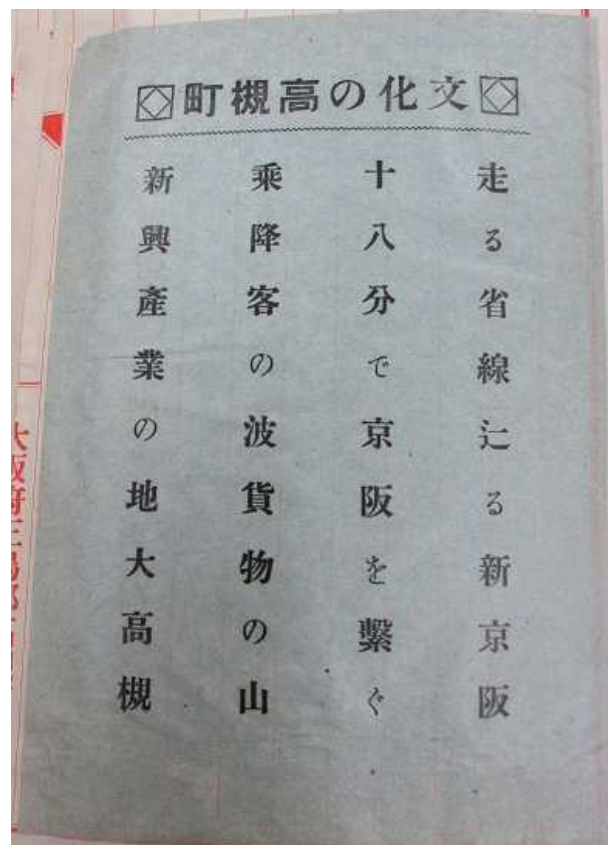 文化の高槻町
走る省線辷る新京阪
十八分で京阪を繋ぐ
乘降客の波貨物の山
新興產業の地大高槻
大阪府三島郡